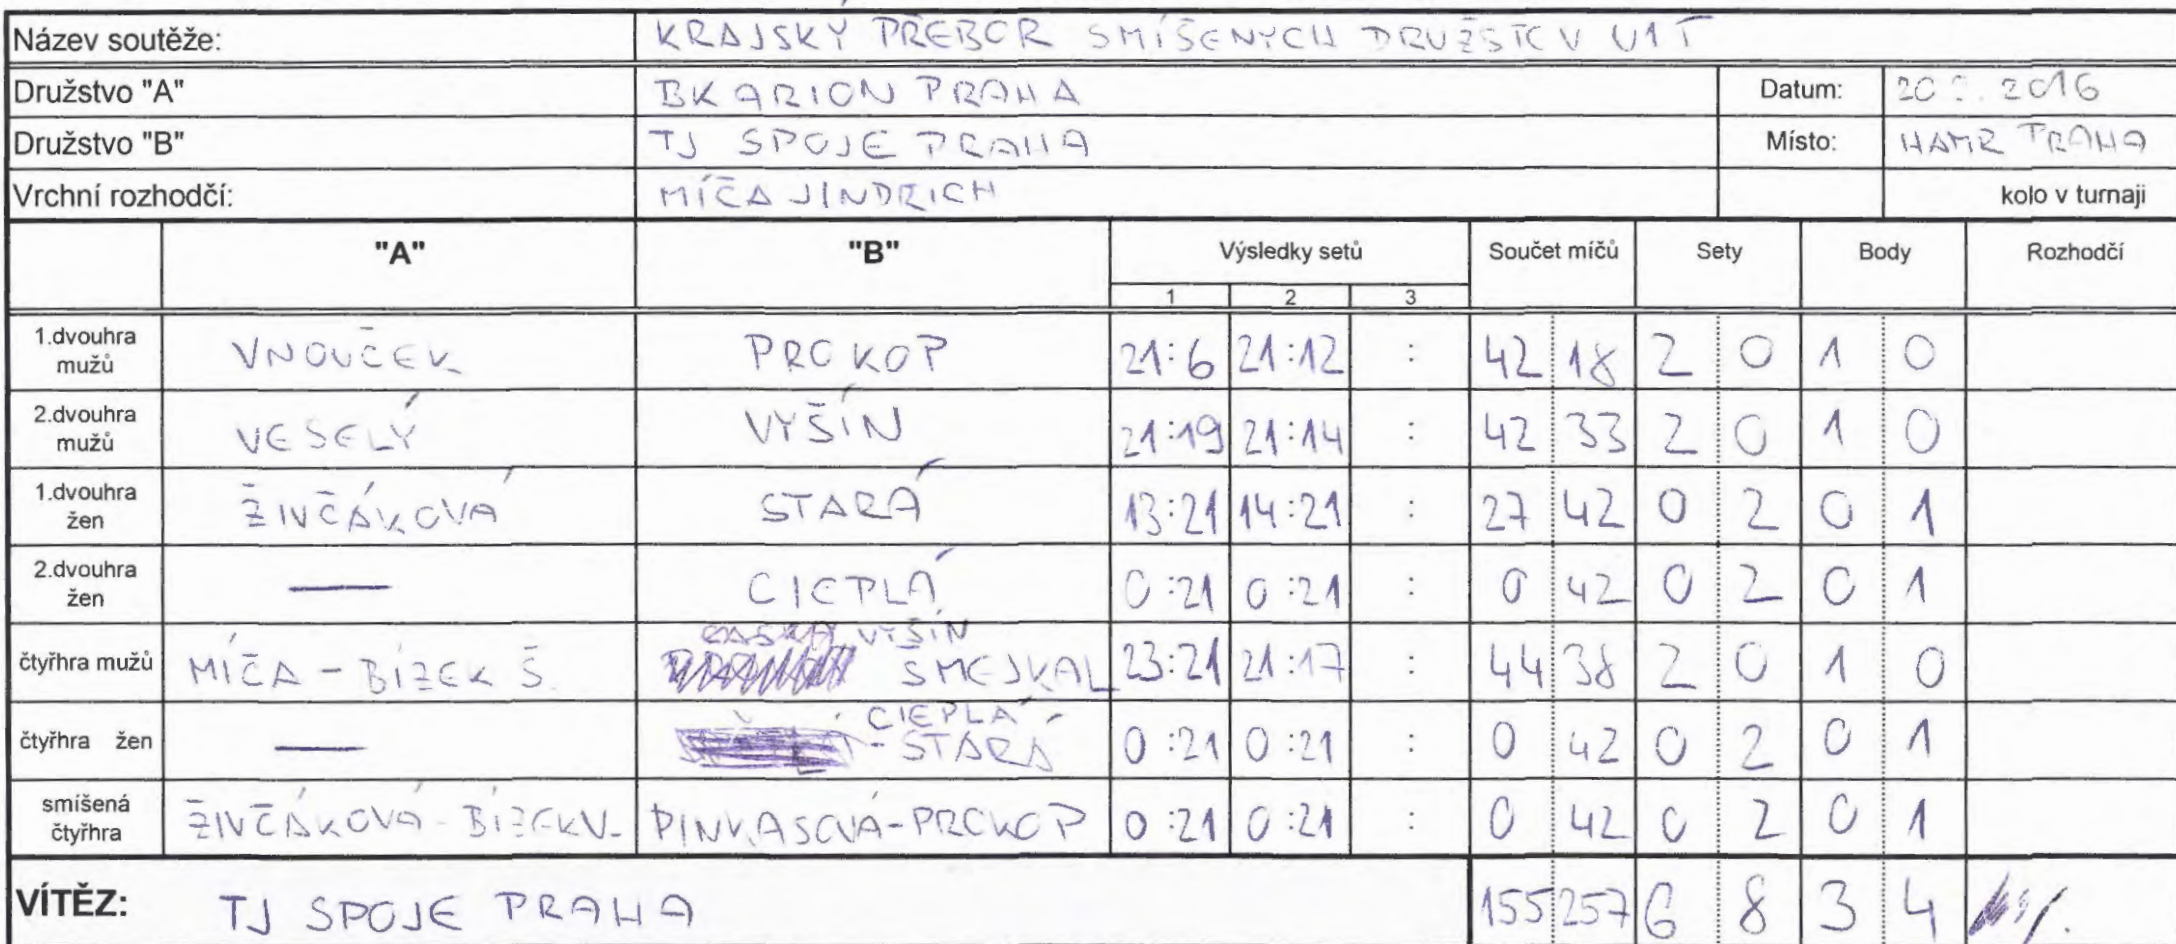 Název soutěže: KRAJSKÝ PŘEBOR SMÍŠENÝCH DRUŽSTEV
Družstvo "A" BK ARION PRAHA Datum: 2016
Družstvo "B" TJ SPOJE PRAHA Místo: HAMR PRAHA
Vrchní rozhodčí: MÍČA JINDŘICH kolo v turnaji
"A" "B" Výsledky setů Součet míčů Sety Body Rozhodčí
1 2 3
1.dvouhra mužů VNOUČEK PROKOP 21:6 21:12 : 42 18 2 0 1 0
2.dvouhra mužů VESELÝ VYŠÍN 21:19 21:14 : 42 33 2 0 1 0
1.dvouhra žen ŽIVČÁKOVÁ STARÁ 13:21 14:21 : 27 42 0 2 0 1
2.dvouhra žen — CIEPLÁ 0:21 0:21 : 0 42 0 2 0 1
čtyřhra mužů MÍČA - BÍZEK Š. VYŠÍN SMEJKAL 23:21 21:17 : 44 38 2 0 1 0
čtyřhra žen — CIEPLÁ - STARÁ 0:21 0:21 : 0 42 0 2 0 1
smíšená čtyřhra ŽIVČÁKOVÁ - BÍZEK V. PINKASOVÁ - PROKOP 0:21 0:21 : 0 42 0 2 0 1
VÍTĚZ: TJ SPOJE PRAHA 155 257 6 8 3 4